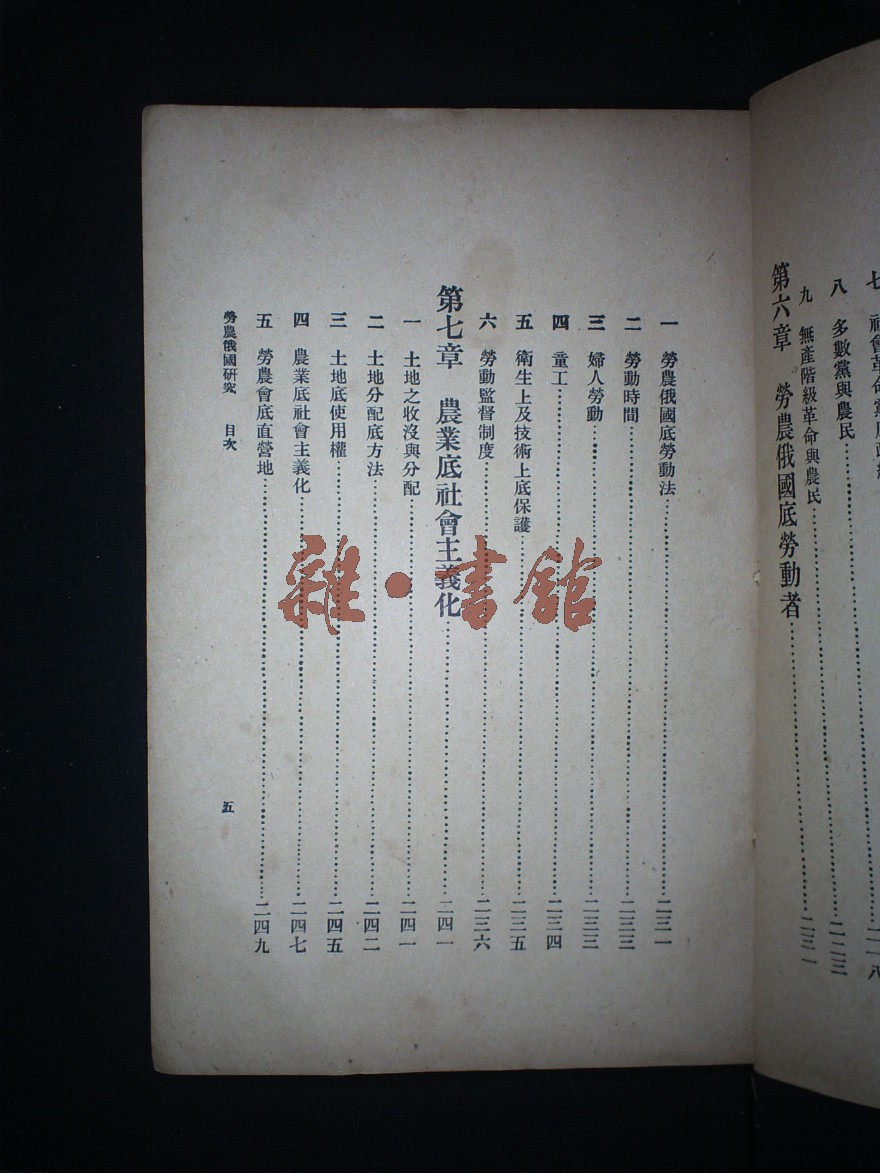 七 社會革命黨
八 多數黨與農民………二二三
九 無產階級革命與農民………二三一
第六章 勞農俄國底勞動者………
一 勞農俄國底勞動法………二三一
二 勞動時間………二三三
三 婦人勞動………二三三
四 童工………二三四
五 衛生上及技術上底保護………二三五
六 勞動監督制度………二三六
第七章 農業底社會主義化………二四一
一 土地之收沒與分配………二四一
二 土地分配底方法………二四二
三 土地底使用權………二四五
四 農業底社會主義化………二四七
五 勞農會底直營地………二四九
勞農俄國研究 目次 五
雜·書館